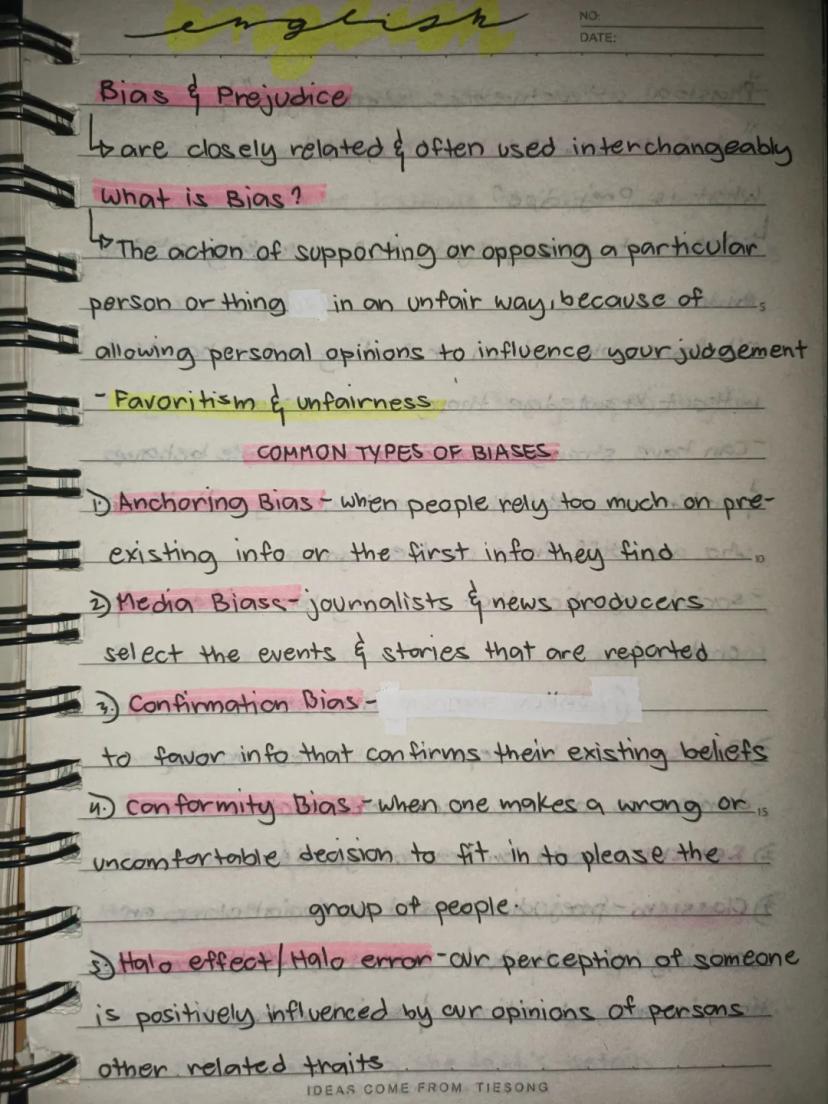 english
NO:
DATE:
Bias & Prejudice
↳ are closely related & often used interchangeably
What is Bias?
↳ The action of supporting or opposing a particular
person or thing in an unfair way, because of
5
allowing personal opinions to influence your judgement
- Favoritism & unfairness
COMMON TYPES OF BIASES
1.) Anchoring Bias - when people rely too much on pre-
existing info or the first info they find
10
2.) Media Biass - journalists & news producers
select the events & stories that are reported
3.) Confirmation Bias -
to favor info that confirms their existing beliefs
4.) Conformity Bias - when one makes a wrong or
15
uncomfortable decision to fit in to please the
group of people.
5.) Halo effect/Halo error - our perception of someone
is positively influenced by our opinions of persons
other related traits
IDEAS COME FROM TIESONG